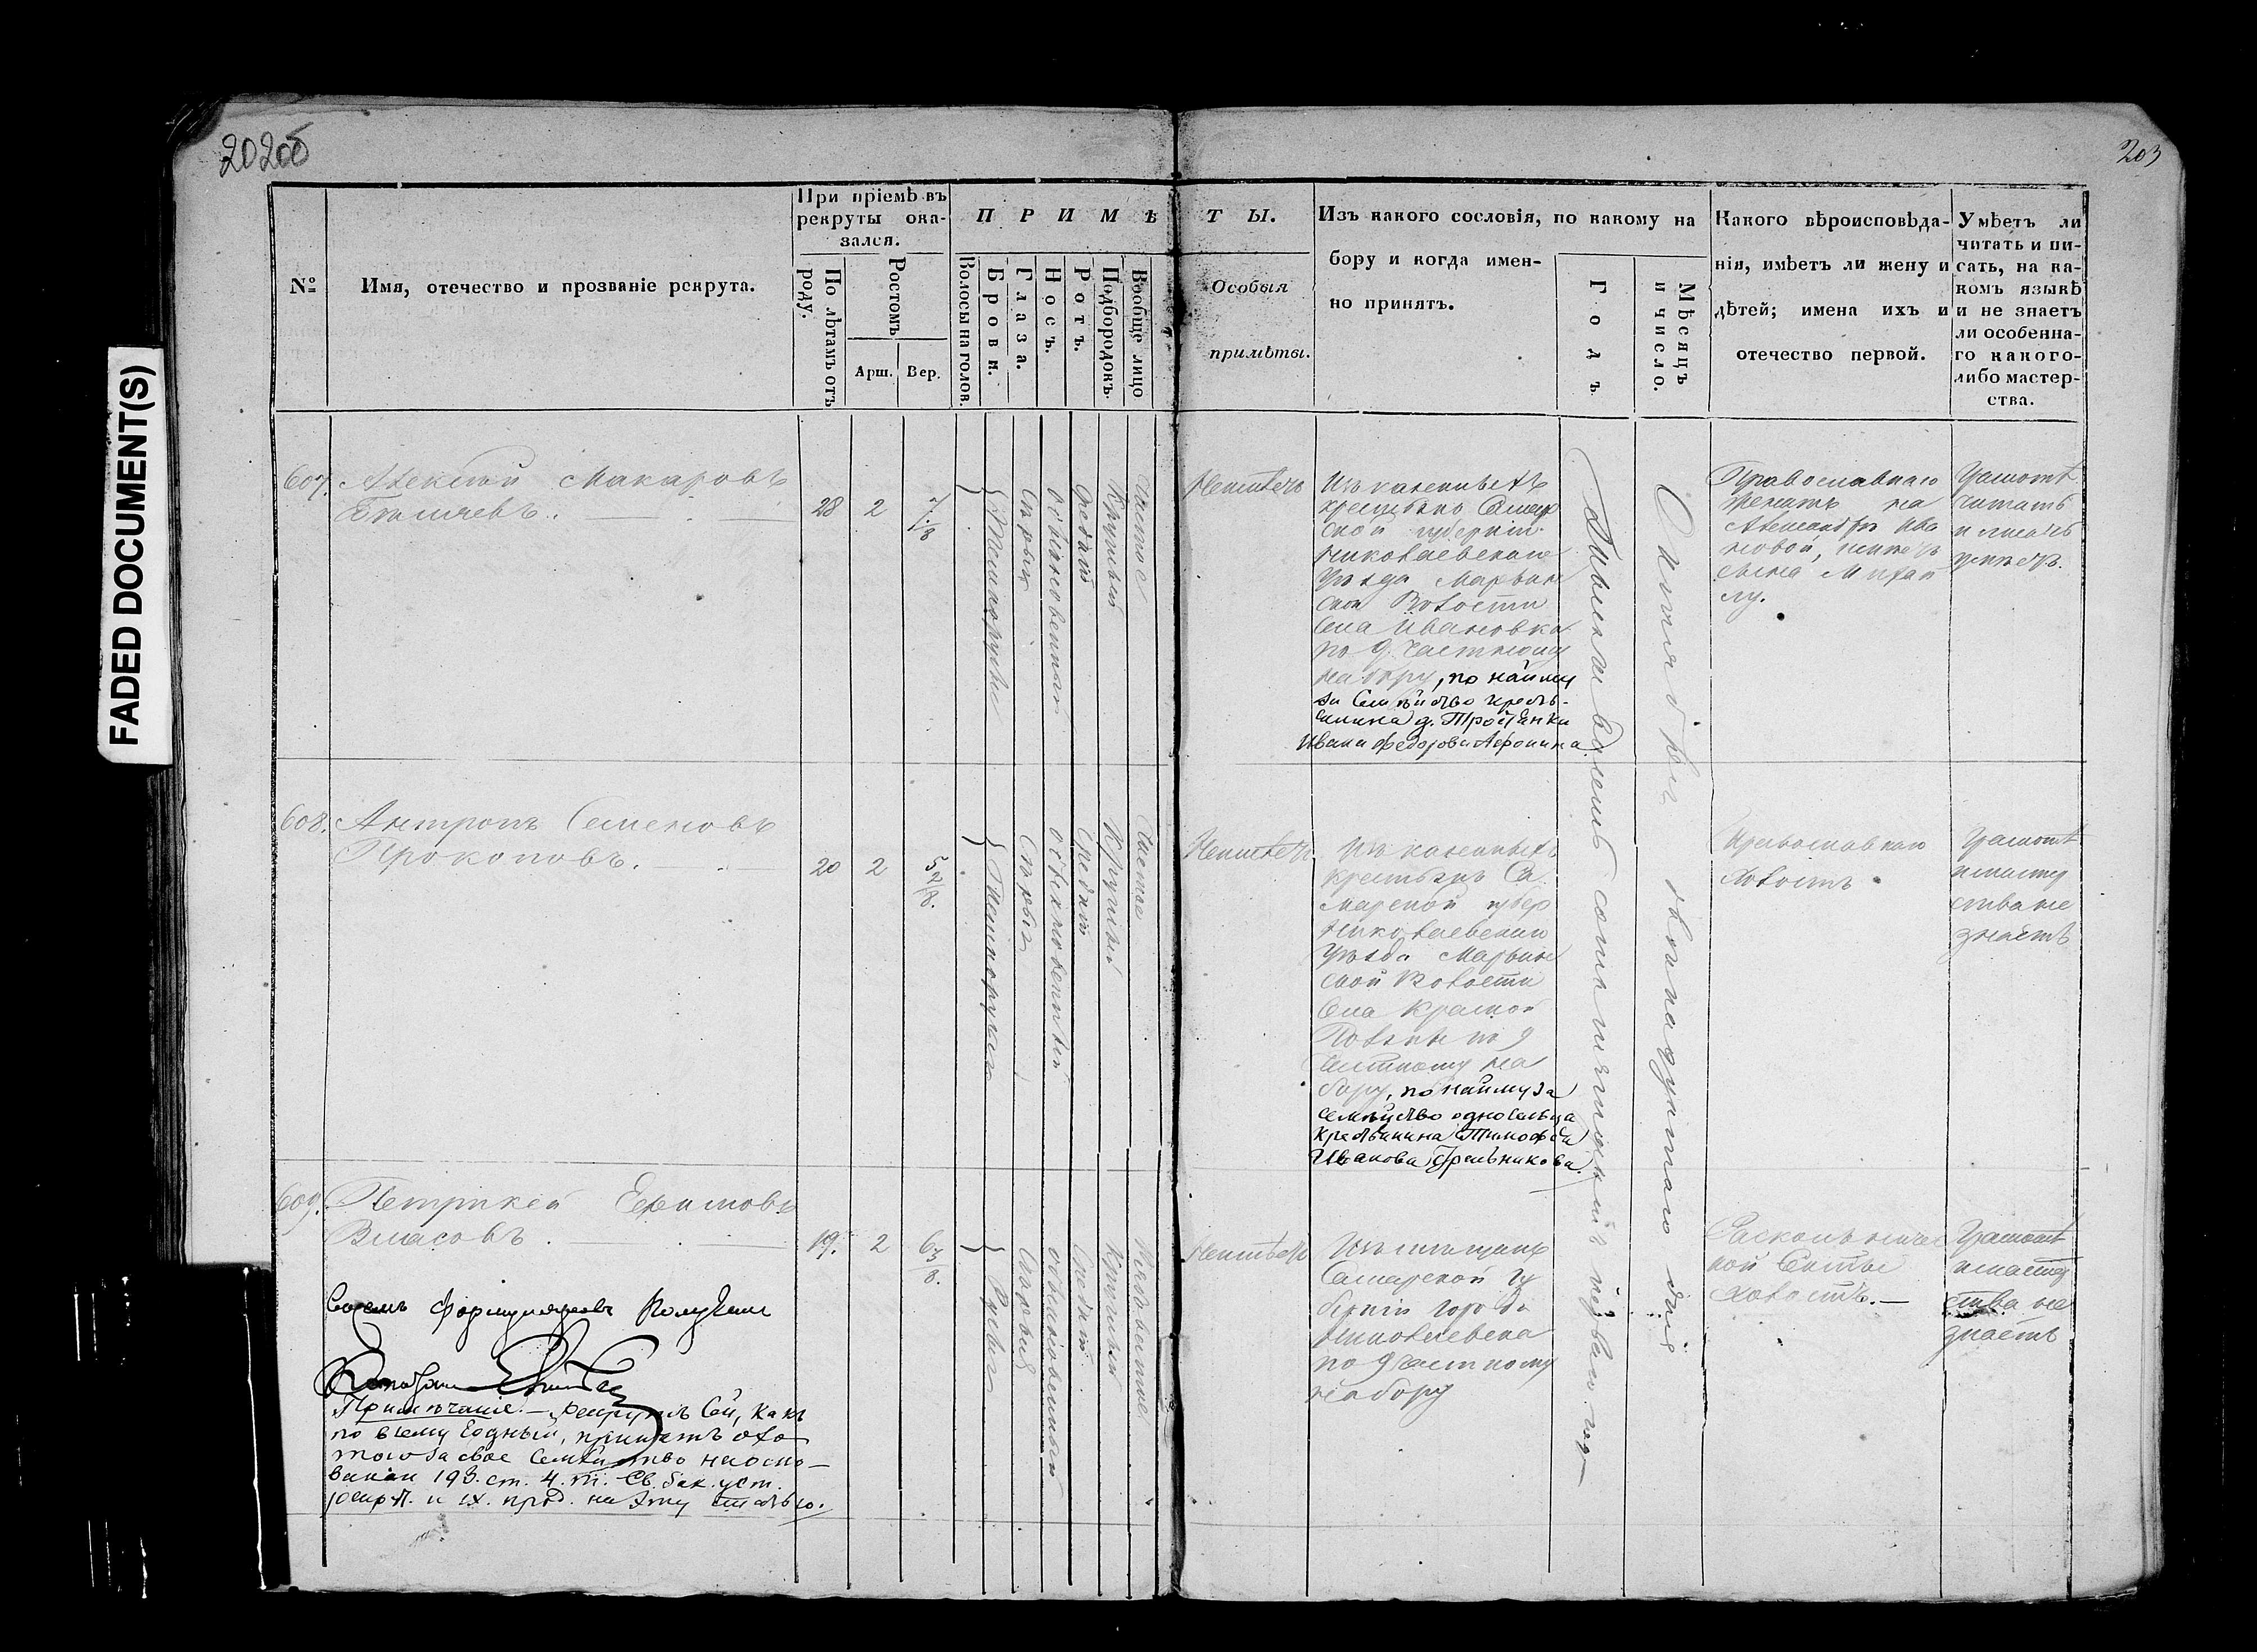 202об
203
FADED DOCUMENT(S)
№
Имя, отечество и прозваніе рекрута.
При пріемѣ въ
рекруты ока-
зался.
По лѣтамъ отъ
роду.
Ростомъ
Арш.
Вер.
ПРИМѢ
ТЫ.
Волосы на голов.
Брови.
Глаза.
Носъ.
Ротъ.
Подбородокъ.
Вообще лицо
Особыя
примѣты.
Изъ какого сословія, по какому на
бору и когда имен-
но принятъ.
Годъ
Мѣсяцъ
и число.
Какого вѣроисповѣда-
нія, имѣетъ ли жену и
дѣтей; имена ихъ и
отечество первой.
Умѣетъ ли
читать и пи-
сать, на ка-
комъ языкѣ
и не знаетъ
ли особенна-
го какого-
либо мастер-
ства.
607.
Алексѣй Макаровъ
28
2
7 1/8
Темнорусые
Сѣрые
Обыкновенный
Средній
Круглый
Чистое
Неимѣетъ
Изъ казенныхъ
крестьянъ Самар
ской губерніи
Николаевскаго
Уѣзда Марьин
ской Волости
Села Ивановки
по 9 частному
набору, по найму
за Семѣйство кресть-
янина д. Тростянки
Ивана Федорова Афонина
Тысяча восемьсотъ пятьдесятъ перваго года
Октября двѣнадцатаго дня
Православнаго
женатъ на
Александрѣ Ива
новой, имѣетъ
сына Михаи
лу.
Грамотѣ
читать
и писать
умѣетъ.
608.
Антропъ Семеновъ
Прокоповъ.
20
2
5 2/8.
Темнорусые
Сѣрые
Обыкновенный
Средній
Круглый
Чистое
Неимѣетъ
Изъ казенныхъ
крестьянъ Са
марской губер
Николаевскаго
Уѣзда Марьин
ской Волости
Села Красной
Поляны по 9
частному на
бору, по найму за
семѣйство односельца
крестьянина Тимофея
Иванова
Православнаго
Холостъ
Грамотѣ
и мастер
ства не
знаетъ
609.
Петрикѣй Ефимовъ
Власовъ.
19.
2
6 3/8.
Русые
Сѣрые
обыкновенный
Средній
Круглый
Неимѣетъ
Изъ мѣщанъ
Самарской Гу
берніи города
Николаевска
по 9 частному
набору
Раскольничес
кой Секты
Холостъ.—
Грамотѣ
и мастер
ства не
знаетъ
Примѣчаніе.— Рекрутъ сей, какъ
по всему годный, принятъ охо
тою за свое Семѣйство на осно-
ваніи 193. ст. 4. т. Св. Зак. уст.
рекрут. и IX. прод. на эту статью.